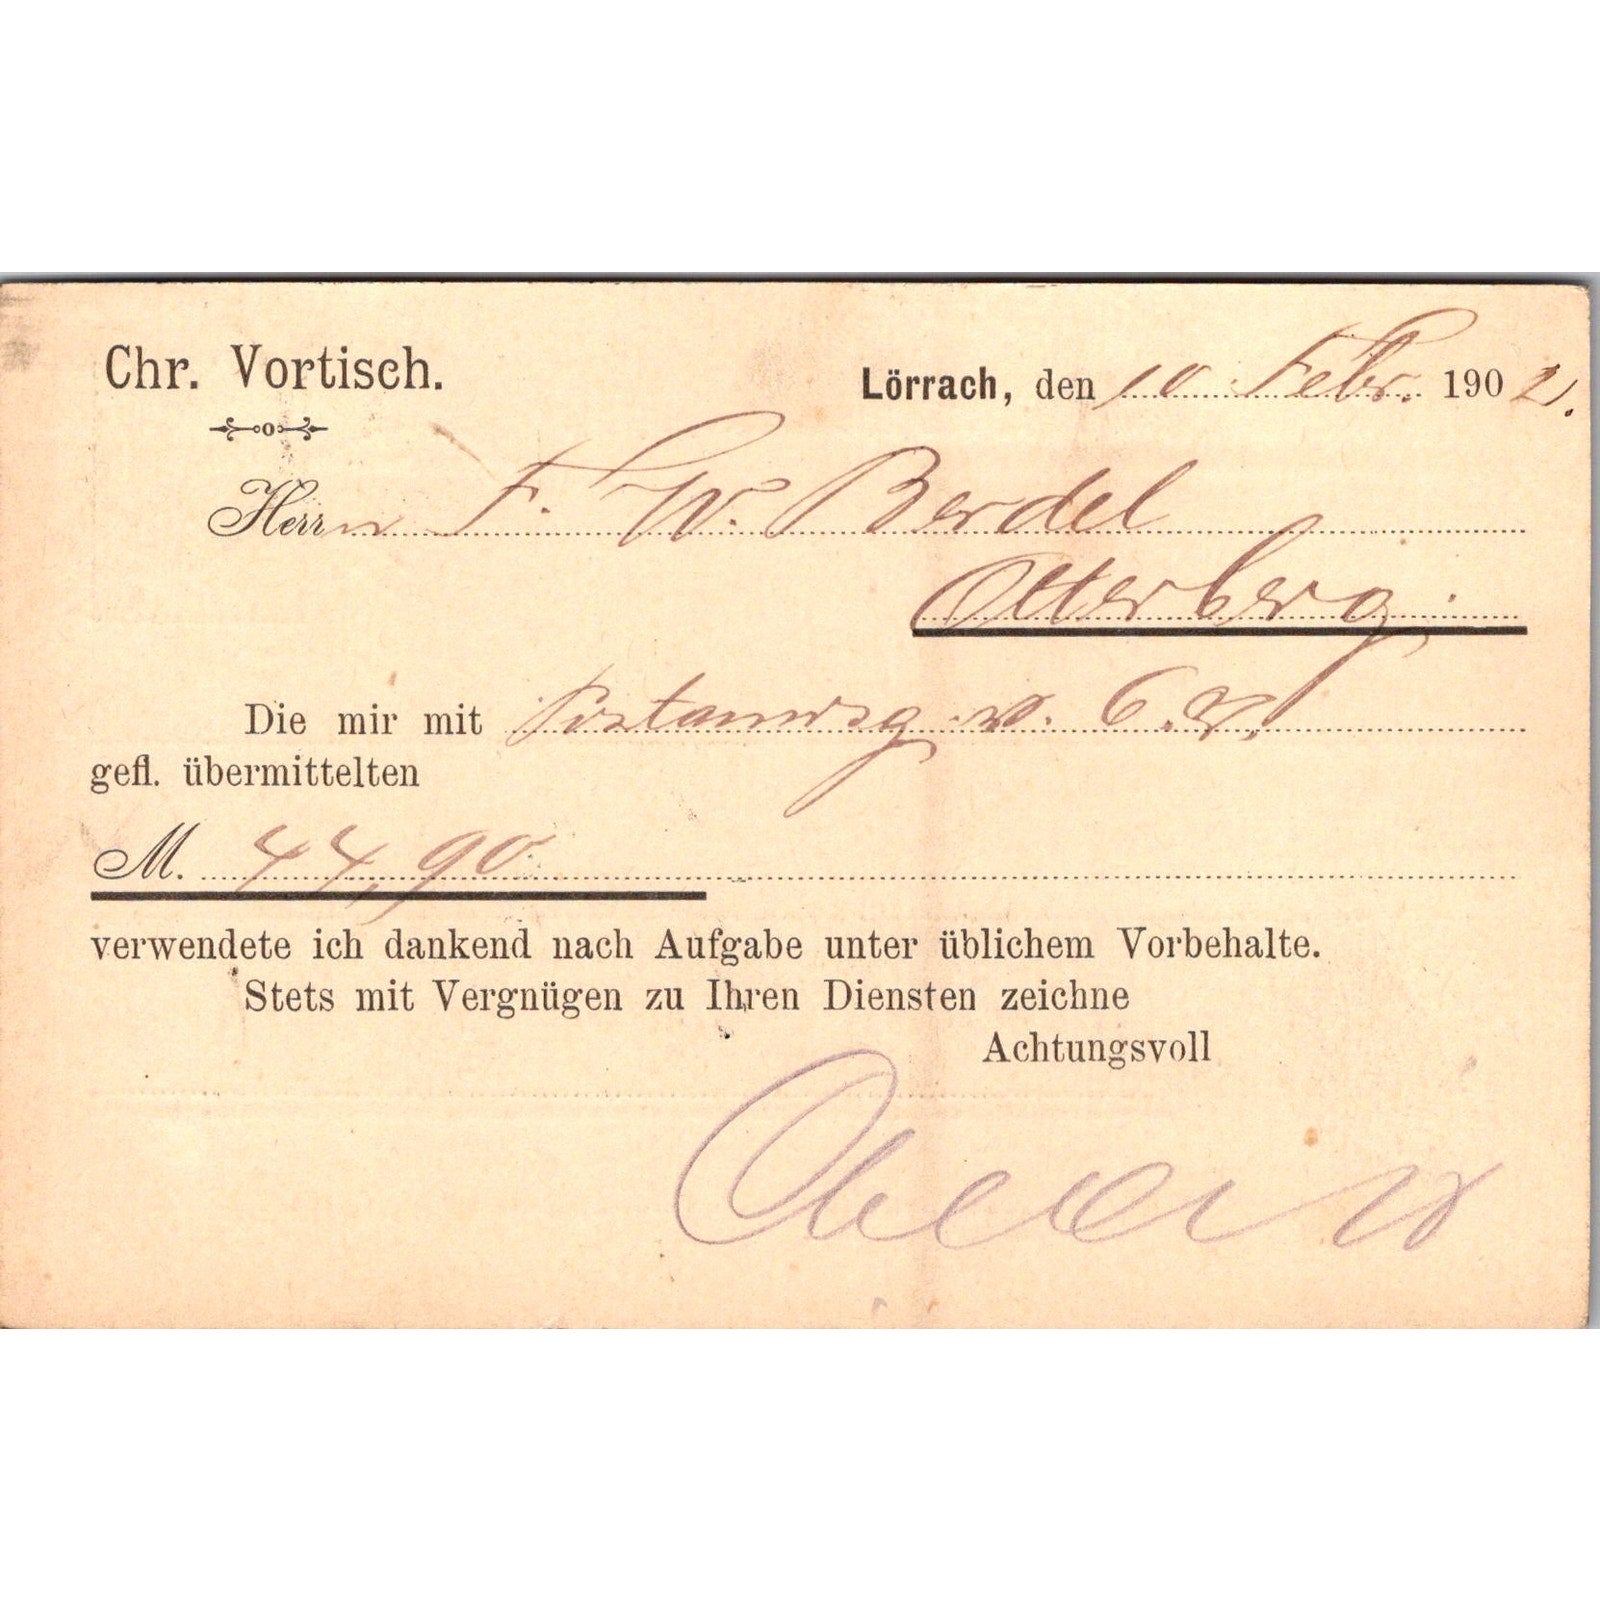 Chr. Vortisch.
Lörrach, den 10 Febr. 1902.
Herrn F. W. Berdel
Otterberg.
Die mir mit Postanwsg. v. 6. d.
gefl. übermittelten
M. 44,90
verwendete ich dankend nach Aufgabe unter üblichem Vorbehalte.
Stets mit Vergnügen zu Ihren Diensten zeichne
Achtungsvoll